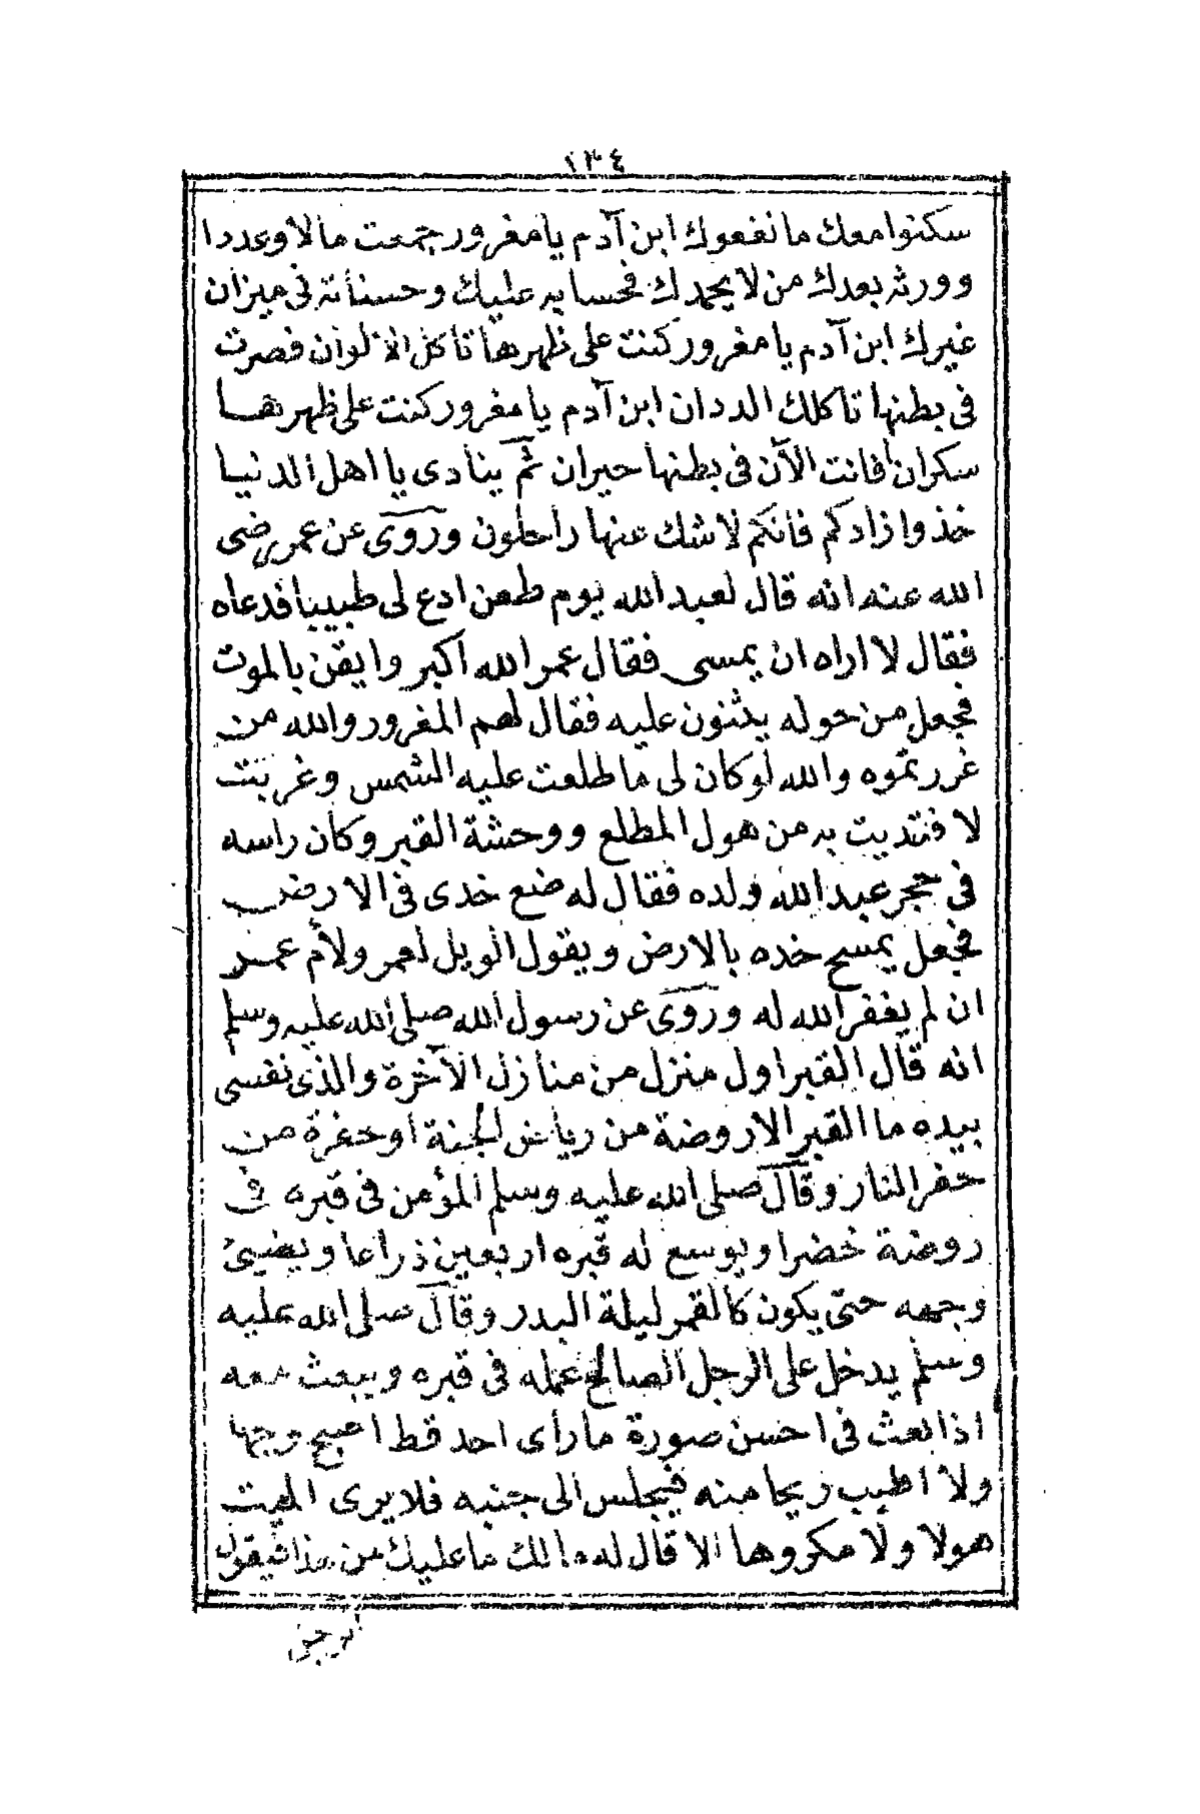 ١٣٤
سكنوا معك ما نفعوك ابن آدم يا مغرور جمعت مالا وعددا
وورثه بعدك من لا يحمدك فحسابه عليك وحسناته فى ميزان
غيرك ابن آدم يا مغرور كنت على ظهرها تاكل الالوان فصرت
فى بطنها تاكلك الددان ابن آدم يا مغرور كنت على ظهرها
سكرانا فانت الآن فى بطنها حيران ثم ينادى يا اهل الدنيا
خذوا زادكم فانكم لا شك عنها راحلون وروى عن عمر رضى
الله عنه انه قال لعبد الله يوم طعن ادع لى طبيبا فدعاه
فقال لا اراه ان يمسى فقال عمر الله اكبر وايقن بالموت
فجعل من حوله يثنون عليه فقال لهم المغرور والله من
غررتموه والله لو كان لى ما طلعت عليه الشمس وغربت
لافتديت به من هول المطلع ووحشة القبر وكان راسه
فى حجر عبد الله ولده فقال له ضع خدى فى الارض
فجعل يمسح خده بالارض ويقول الويل لعمر ولأم عمر
ان لم يغفر الله له وروى عن رسول الله صلى الله عليه وسلم
انه قال القبر اول منزل من منازل الآخرة والذى نفسى
بيده ما القبر الا روضة من رياض الجنة او حفرة من
حفر النار وقال صلى الله عليه وسلم المؤمن فى قبره فى
روضة خضرا ويوسع له قبره اربعين ذراعا ويضيئ
وجهه حتى يكون كالقمر ليلة البدر وقال صلى الله عليه
وسلم يدخل على الرجل الصالح عمله فى قبره ويبعث معه
اذا بعث فى احسن صورة ما رأى احد قط اصبح وجها
ولا اطيب ريحا منه فيجلس الى جنبه فلا يرى الميت
هولا ولا مكروها الا قال له مالك ما عليك من هذا فيقول